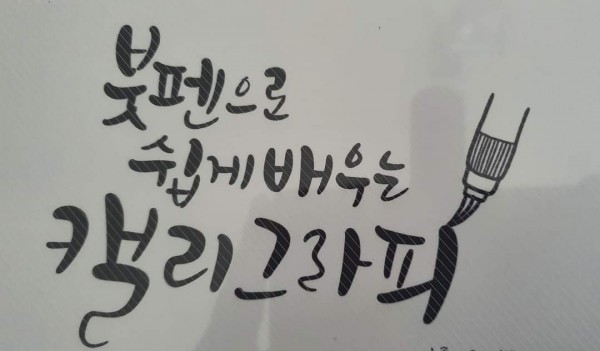 붓펜으로
쉽게 배우는
캘리그라피